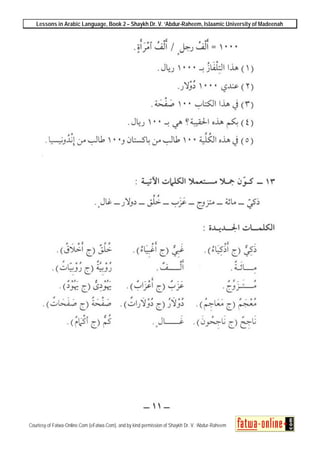 Lessons in Arabic Language, Book 2 – Shaykh Dr. V. ‘Abdur-Raheem, Islaamic University of Madeenah
١٠٠٠ = أَلْفُ رجلٍ / أَلْفُ امْرَأَةٍ.
(١) هذا التِلْفَازُ بـ ١٠٠٠ ريال.
(٢) عندي ١٠٠٠ دُوْلارٍ.
(٣) في هذا الكتاب ١٠٠ صَفْحَة.
(٤) بكم هذه الحقيبة؟ هي بـ ١٠٠ ريال.
(٥) في هذه الكُلِّية ١٠٠ طالب من باكستان و١٠٠ طالب من إنْدُونِيسيا.
١٣ ــ كـوّن جمـلا مسـتعملا الكلمات الآتيـة :
ذكيّ ــ مائة ــ متزوج ــ عَزَب ــ خُلُق ــ دولار ــ غالٍ.
الكلمـــات الجـــديـــدة :
ذَكِيٌّ (ج أَذْكِيَاءُ). غَبِيٌّ (ج أَغْبِيَاءُ). خُلُقٌ (ج أَخْلَاقٌ).
مِـــائَـــةٌ. أَلْـــــفٌ. رُوْبِيَّةٌ (ج رُوْبِيَّاتٌ).
مُـــتَـــزَوِّجٌ. عَزَبٌ (ج أَعْزَابٌ). يَهُوْدِىٌّ (ج يَهُوْدٌ).
مُعْجَمٌ (ج مَعَاجِمُ). دُوْلَارٌ (ج دُوْلَاراتٌ). صَفْحَةٌ (ج صَفَحَاتٌ).
نَاجِحٌ (ج نَاجِحُونَ). غَـــــالٍ. كُمٌّ (ج أَكْمَامٌ).
ــ ١١ ــ
Courtesy of Fatwa-Online.Com (eFatwa.Com), and by kind permission of Shaykh Dr. V. ‘Abdur-Raheem
fatwa-online.com